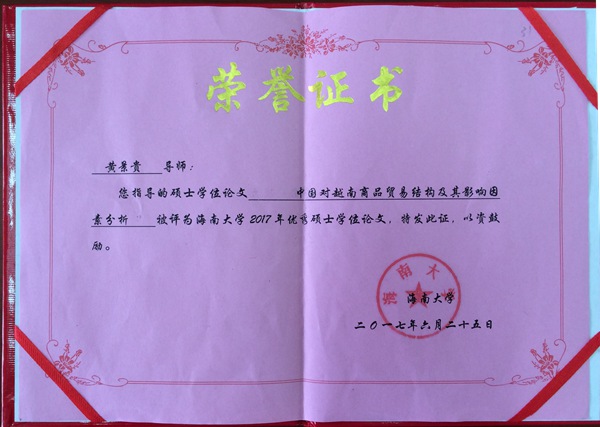 荣誉证书
黄景贵 导师：
您指导的硕士学位论文 中国对越南商品贸易结构及其影响因
素分析 被评为海南大学2017年优秀硕士学位论文，特发此证，以资鼓
励。
海南大学
海南大学
二〇一七年六月二十五日